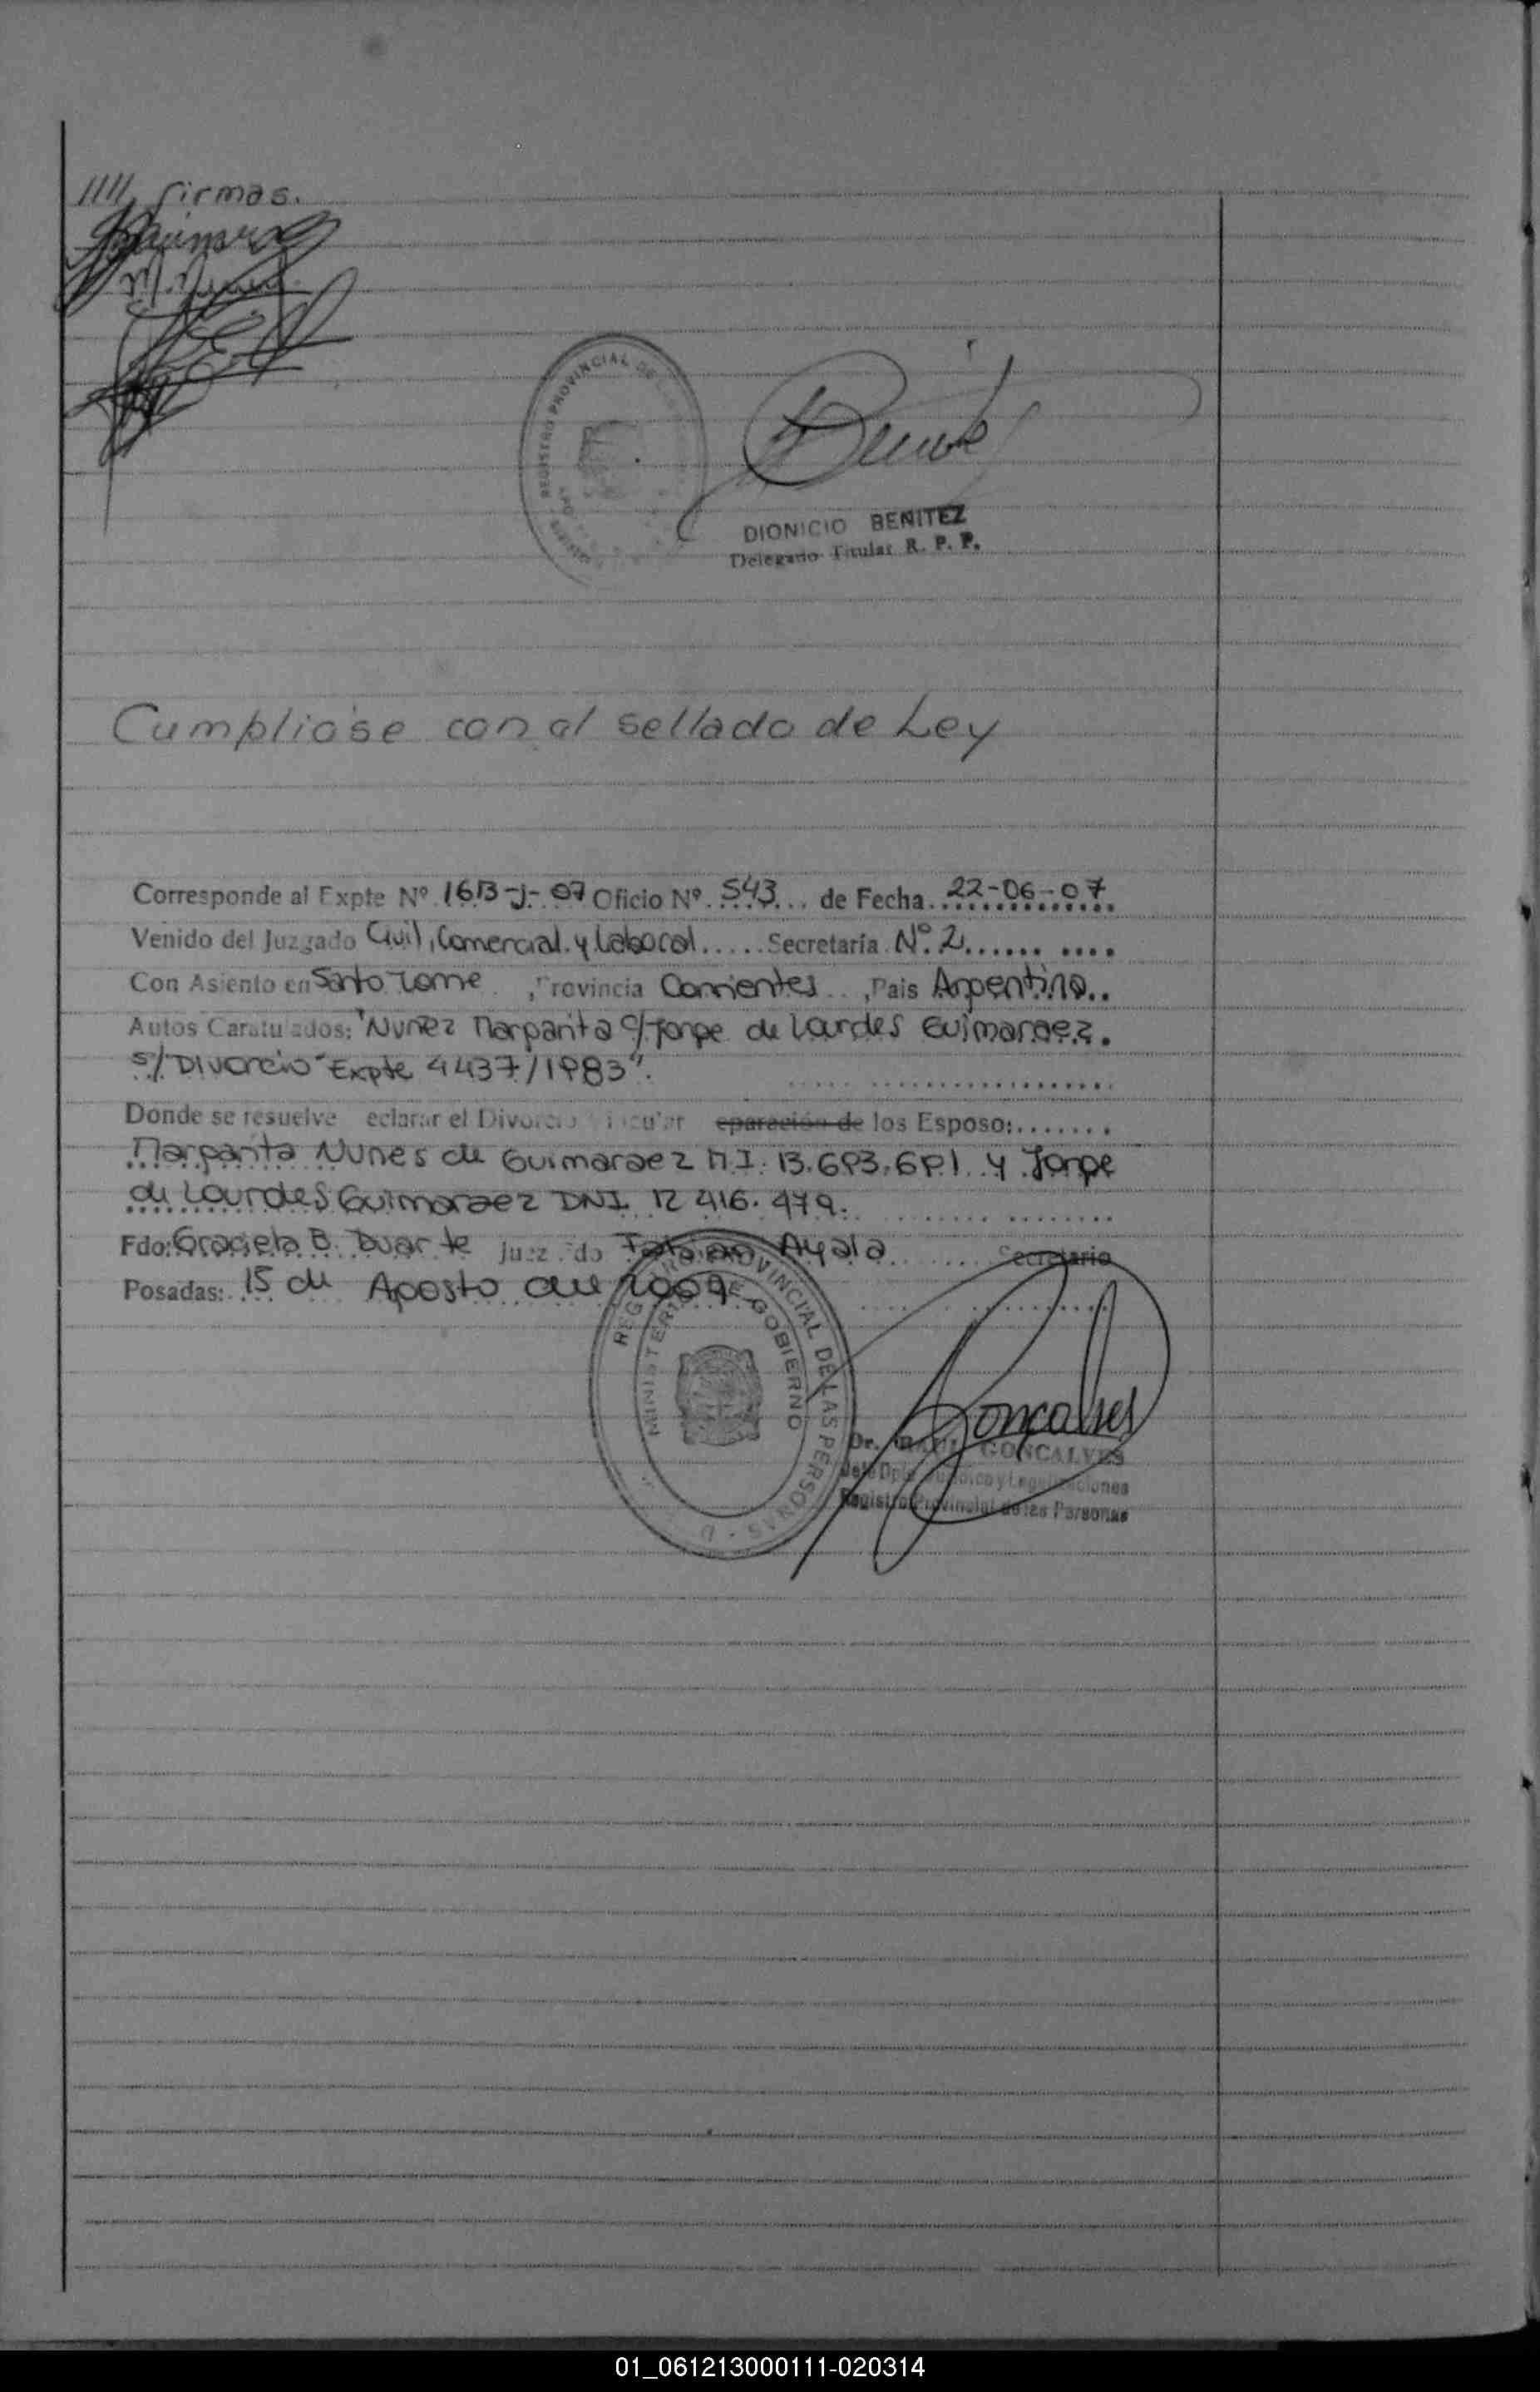 //// firmas.
REGISTRO PROVINCIAL DE
DIONICIO BENITEZ
Delegado Titular R. P. P.
Cumplióse con el sellado de Ley
Corresponde al Expte Nº 1613-J-07 Oficio Nº 543... de Fecha 22-06-07
Venido del Juzgado Civil, Comercial y Laboral..... Secretaría Nº 2...... ....
Con Asiento en Santo Tome , Provincia Corrientes , Pais Argentina..
Autos Caratulados: "Nuñez Margarita c/ Jorge de Lourdes Guimaraez.
s/ Divorcio" Expte 4437/1983".
Donde se resuelve eclarar el Divorcio incular eparación de los Esposo:.......
Margarita Nunes de Guimaraez M.I. 13.693.691 y Jorge
de Lourdes Guimaraez DNI 12 416.479.
Fdo: Graciela B. Duarte Juez Fdo Ayala Secretario
Posadas: 15 de Agosto de 2009
REGISTRO PROVINCIAL DE LAS PERSONAS
MINISTERIO DE GOBIERNO
Gonçalves
Dr. RAUL GONCALVES
Jefe Dpto. Jurídico y Legalizaciones
Registro Provincial de las Personas
01_061213000111-020314